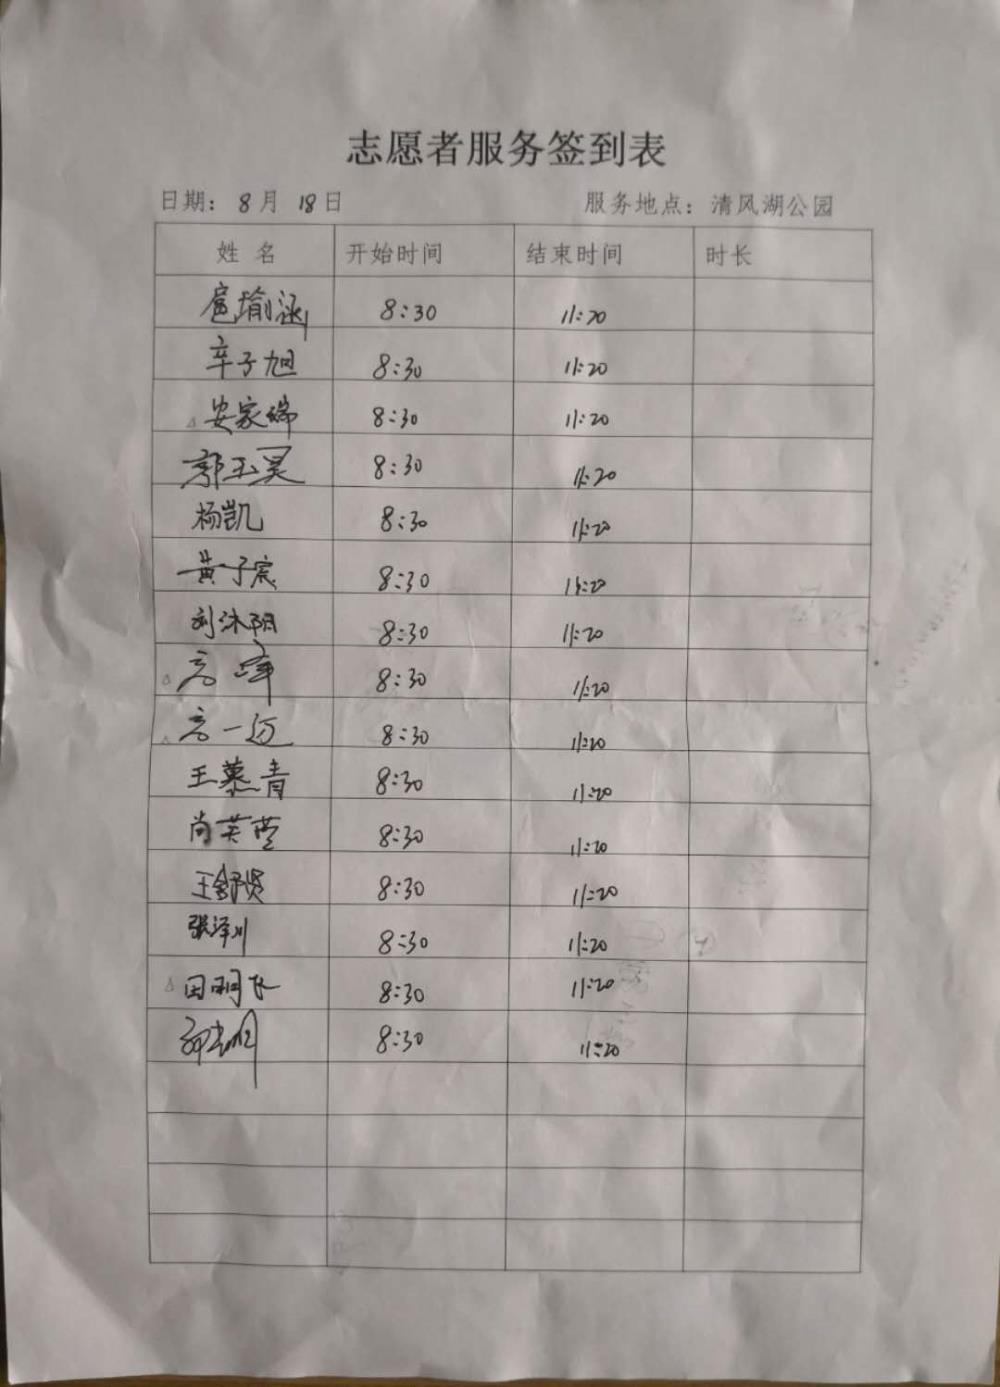 志愿者服务签到表
日期：8月 18日 服务地点：清风湖公园
姓 名 开始时间 结束时间 时长
扈瑜涵 8:30 11:20
辛子旭 8:30 11:20
安家瑞 8:30 11:20
郭玉昊 8:30 11:20
杨凯 8:30 11:20
黄子宸 8:30 11:20
刘沐阳 8:30 11:20
高峰 8:30 11:20
高一迈 8:30 11:20
王慕青 8:30 11:20
尚芙萱 8:30 11:20
王舒贤 8:30 11:20
张泽川 8:30 11:20
田明飞 8:30 11:20
8:30 11:20